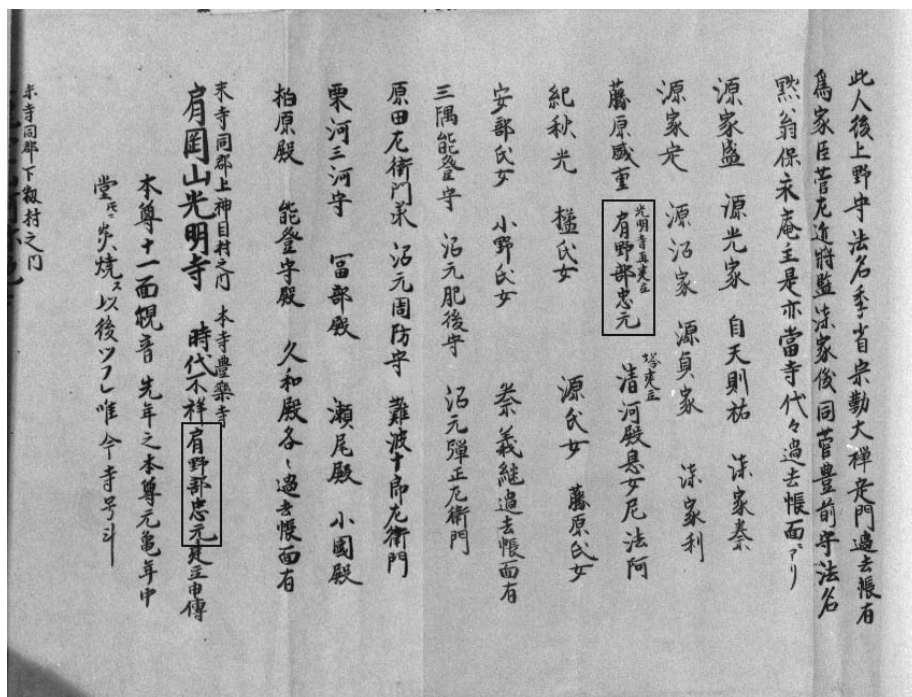 此人後上野守法名季省宗勤大禅定門過去帳有
為家臣菅左近将監漆家後同菅豊前守法名
黙翁保永庵主是亦當寺代々過去帳面ニアリ
源家盛 源光家 自天則祐 漆家泰
源家定 源沼家 源貞家 漆家利
藤原盛重 光明寺再建立 肩野部忠元 塔建立 清河殿息女尼法阿
紀秋光 榲氏女 源氏女 藤原氏女
安部氏女 小野氏女 秦義継過去帳面有
三隅能登守 沼元肥後守 沼元弾正左衛門
原田左衛門 沼元周防守 難波十郎左衛門
栗河三河守 冨部殿 瀬尾殿 小國殿
柏原殿 能登守殿 久和殿各々過去帳面有
末寺同郡上神目村之内 本寺豊楽寺
肩岡山光明寺 時代不祥肩野部忠元建立申傳
本尊十一面観音 先年之本尊元亀年中
堂モニ炎焼ス以後ツフレ唯今寺号斗
末寺同郡下籾村之内